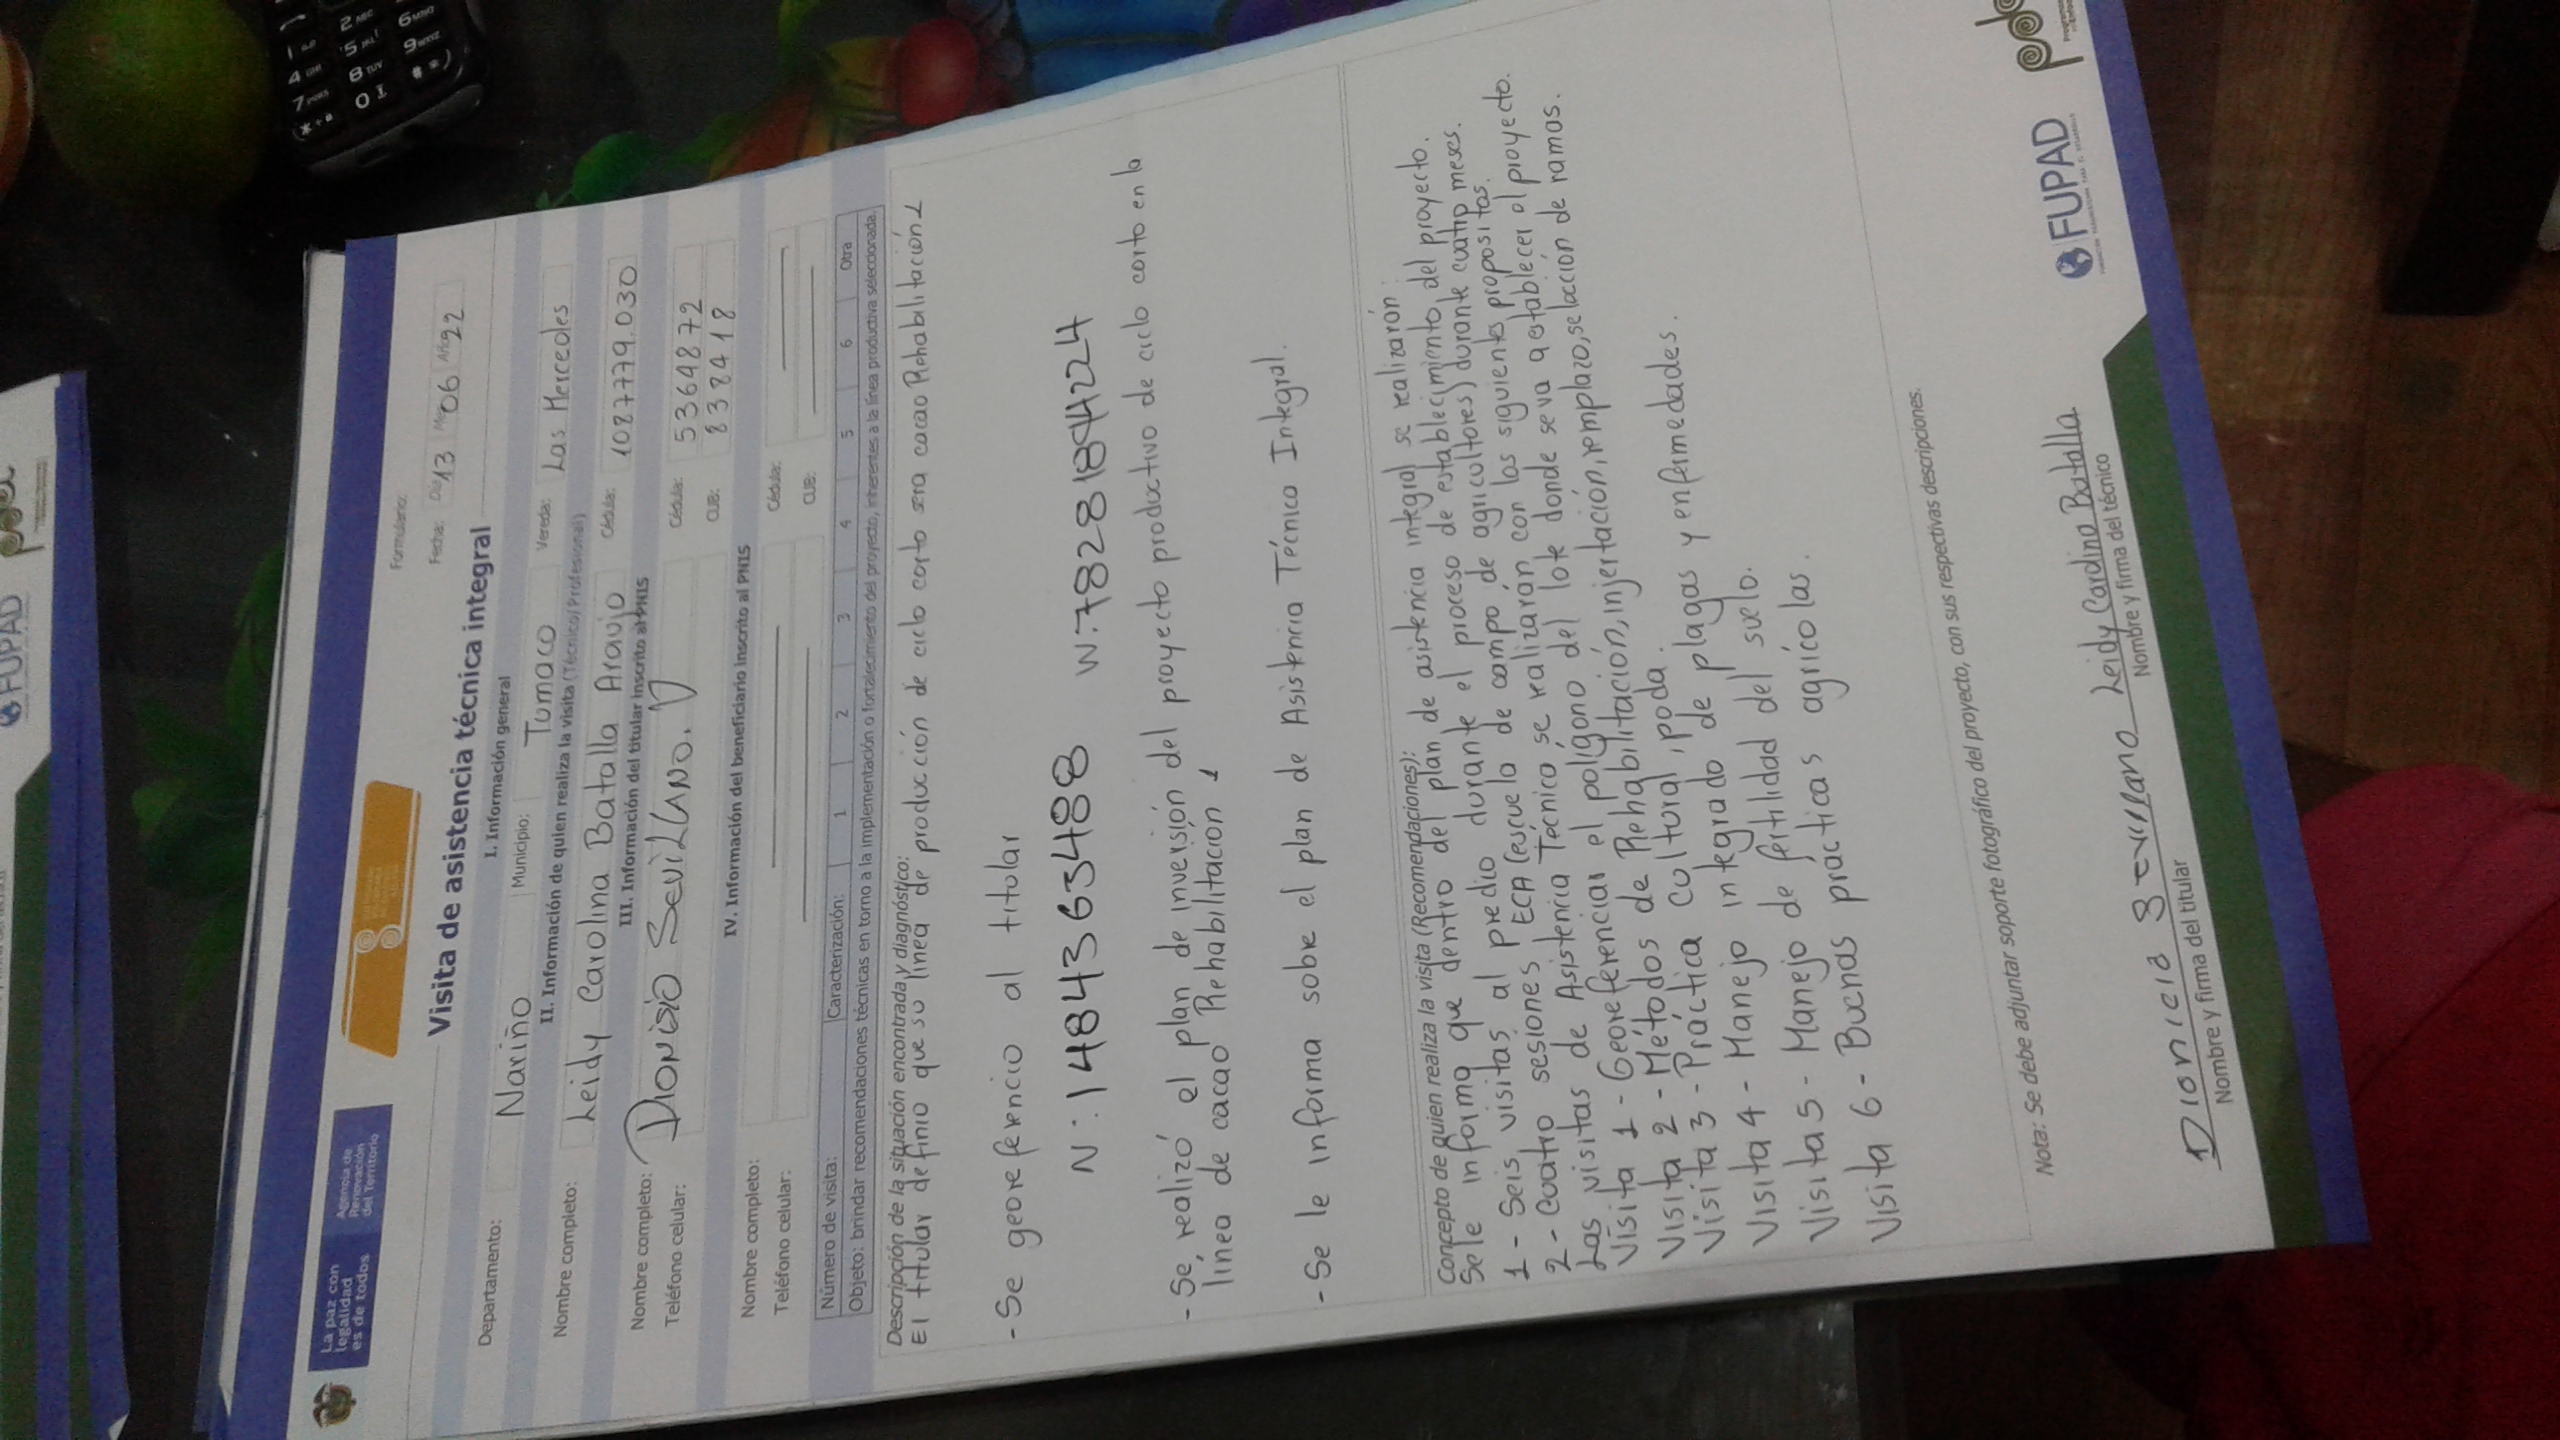 La paz con
legalidad
es de todos
Agencia de
Renovación
del Territorio
Formulario:
Visita de asistencia técnica integral
Fecha: Día 13 Mes 06 Año 22
I. Información general
Departamento: Nariño Municipio: Tumaco Vereda: Las Mercedes
II. Información de quien realiza la visita (Técnico/Profesional)
Nombre completo: Leidy Carolina Batalla Araujo Cédula: 1087779.030
III. Información del titular inscrito al PNIS
Nombre completo: Dionisio Sevillano. Cédula: 5364872
Teléfono celular: CUB: 838418
IV. Información del beneficiario inscrito al PNIS
Nombre completo: Cédula:
Teléfono celular: CUB:
Número de visita: Caracterización: 1 2 3 4 5 6 Otra
Objeto: brindar recomendaciones técnicas en torno a la implementación o fortalecimiento del proyecto, inherentes a la línea productiva seleccionada.
Descripción de la situación encontrada y diagnóstico:
El titular definio que su linea de producción de ciclo corto sera cacao Rehabilitación
- Se georeferencio al titular
N: 1484363488 W:78281894224
- Se realizó el plan de inversión del proyecto productivo de ciclo corto en la
linea de cacao Rehabilitación
- Se le informa sobre el plan de Asistencia Técnica Integral.
Concepto de quien realiza la visita (Recomendaciones):
Se le informa que dentro del plan de asistencia integral se realizarón:
1 - Seis visitas al predio durante el proceso de establecimiento del proyecto.
2 - Cuatro sesiones ECA (escuela de campo de agricultores) durante cuatro meses.
Las visitas de Asistencia Técnico se realizarán con los siguientes propositos.
Visita 1 - Georeferenciar el poligono del lote donde se va a establecer el proyecto.
Visita 2 - Métodos de Rehabilitación, injertación, remplazo, selación de ramas.
Visita 3 - Práctica cultural, poda.
Visita 4 - Manejo integrado de plagas y enfermedades.
Visita 5 - Manejo de fertilidad del suelo.
Visita 6 - Buenas prácticas agrícolas.
Nota: Se debe adjuntar soporte fotográfico del proyecto, con sus respectivas descripciones.
Dionicio Sevillano
Nombre y firma del titular
Leidy Carolina Batalla
Nombre y firma del técnico
FUPAD
FUPAD